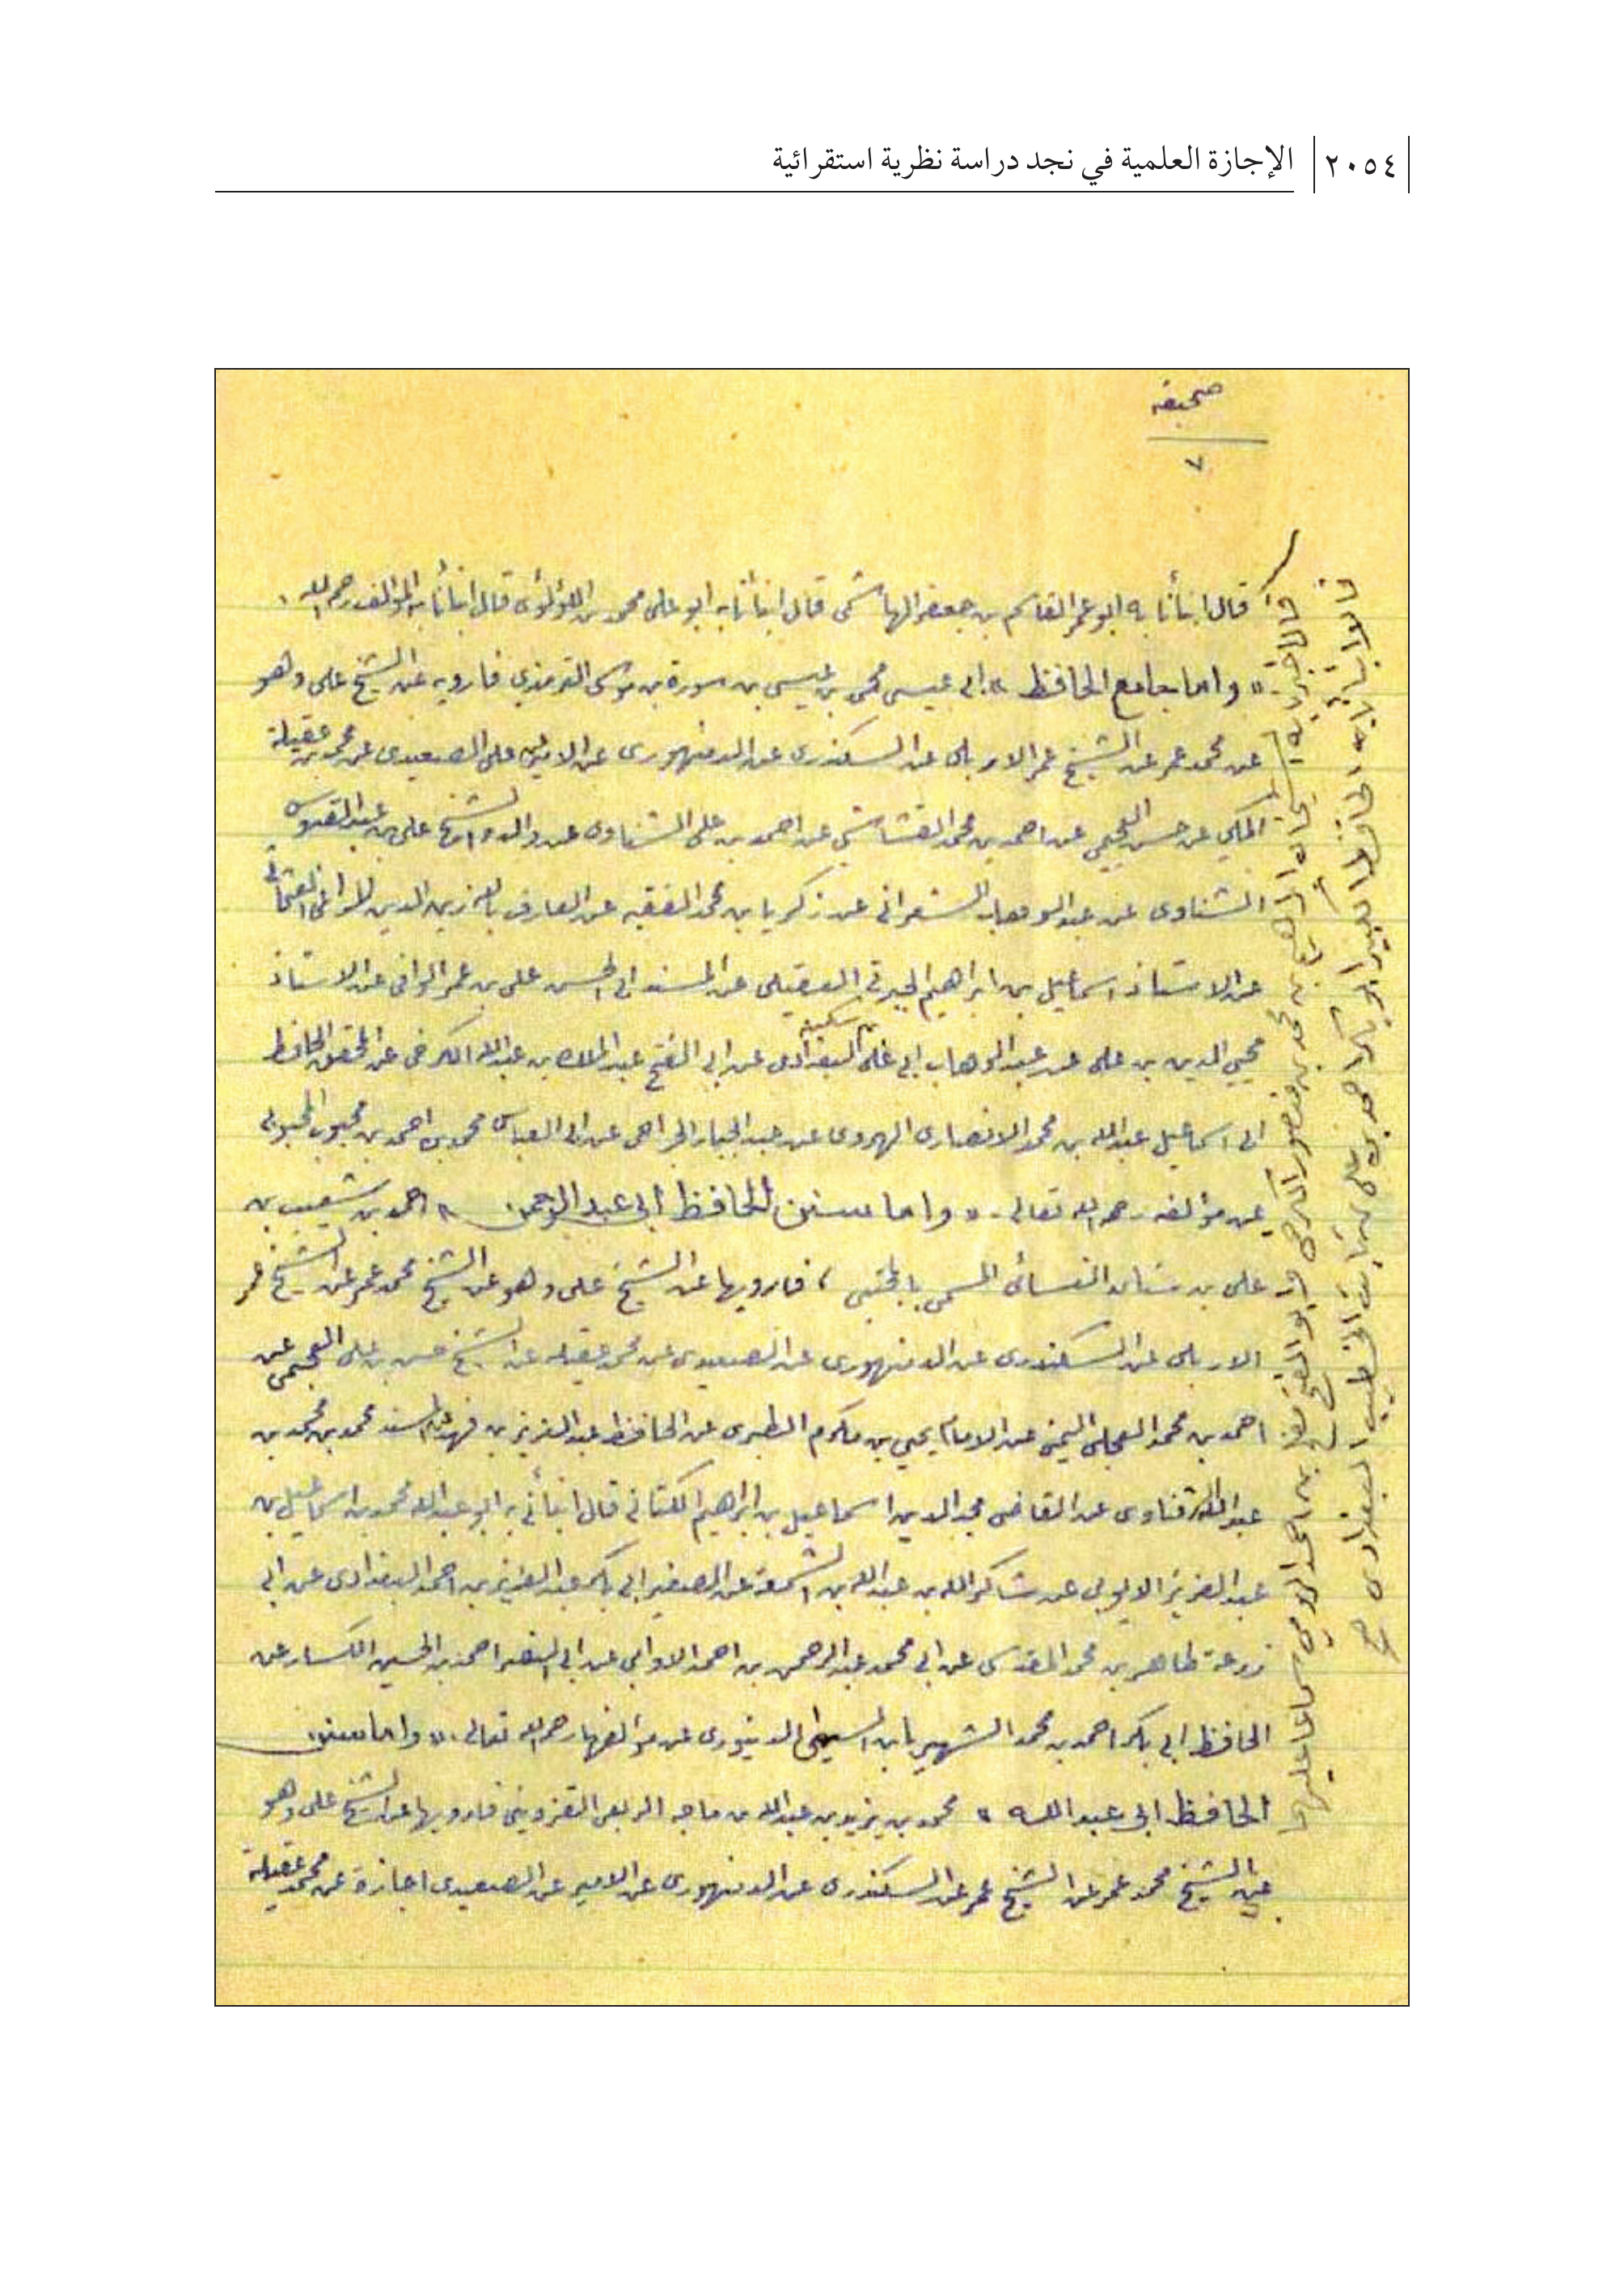 ٢٠٥٤ الإجازة العلمية في نجد دراسة نظرية استقرائية
صحيفة
٧
قال انبأنا به ابو عمر القاسم بن جعفر الهاشمى قال انبأنا به ابو على محمد بن اللؤلؤى قال انبأنا به المؤلف رحمه الله .
« واما جامع الحافظ » ابى عيسى محمد بن عيسى بن سورة بن موسى الترمذي فارويه عن الشيخ على وهو
عن محمد عمر عن الشيخ عمر الاربلى عن السكندرى عن الدمنهورى عن الامير على الصعيدى عن محمد بن عقيلة
المكي عن حسن العجيمى عن احمد بن محمد القشاشى عن احمد بن على الشناوى عن والده الشيخ على بن عبد القدوس
الشناوى عن عبد الوهاب الشعرانى عن زكريا بن محمد الفقيه عن العارف بالله زين الدين المراغى العثمانى
عن الاستاذ اسماعيل بن ابراهيم الجبرتى العقيلى عن المسند ابى الحسن على بن عمر الوافى عن الاستاذ
محيي الدين بن على عن عبد الوهاب ابى على بن سكينه البغدادى عن ابى الفتح عبد الملك بن عبد الله الكرخى عن المحقق الحافظ
ابى اسماعيل عبد الله بن محمد الانصارى الهروى عن عبد الجبار الجراحى عن ابى العباس محمد بن احمد بن محبوب المحبوبى
عن مؤلفه رحمه الله تعالى . « واما سنن الحافظ ابى عبد الرحمن » احمد بن شعيب بن
على بن سنان النسائى المسمى بالمجتبى ، فارويها عن الشيخ على وهو عن الشيخ محمد عمر عن الشيخ عمر
الاربلى عن السكندرى عن الدمنهورى عن الصعيدى عن محمد عقيله عن الشيخ حسن بن على العجيمى عن
احمد بن محمد العجلى اليمنى عن الامام يحيي بن مكرم الطبرى عن الحافظ عبد العزيز بن فهد عن المسند محمد بن محمد بن
عبد الله الزفتاوى عن القاضى مجد الدين اسماعيل بن ابراهيم الكنانى قال انبأنى به ابو عبد الله محمد بن اسماعيل بن
عبد العزيز الايوبى عن شاكر الله بن عبد الله بن الشمعة عن الصغير ابى بكر عبد العزيز بن احمد البغدادى عن ابى
زرعة طاهر بن محمد المقدسى عن ابى محمد عبد الرحمن بن احمد الدوانى عن ابى النصر احمد بن الحسين الكسار عن
الحافظ ابى بكر احمد بن محمد الشهير بابن السنى الدينورى عن مؤلفها رحمه الله تعالى . « واما سنن
الحافظ ابى عبد الله » محمد بن يزيد بن عبد الله بن ماجه الربعى القزويني فارويها عن الشيخ على وهو
عن الشيخ محمد عمر عن الشيخ عمر عن السكندرى عن الدمنهورى عن الامير عن الصعيدى اجازة عن محمد عقيلة
قال اخبرنا به ابراهيم بن محمد بن منصور الكرخى ابو الفتح مفلح بن احمد الدومي سماعا عليهما
قالا انبأنا به الحافظ الكبير ابو بكر احمد بن على بن ثابت الخطيب البغدادى ح